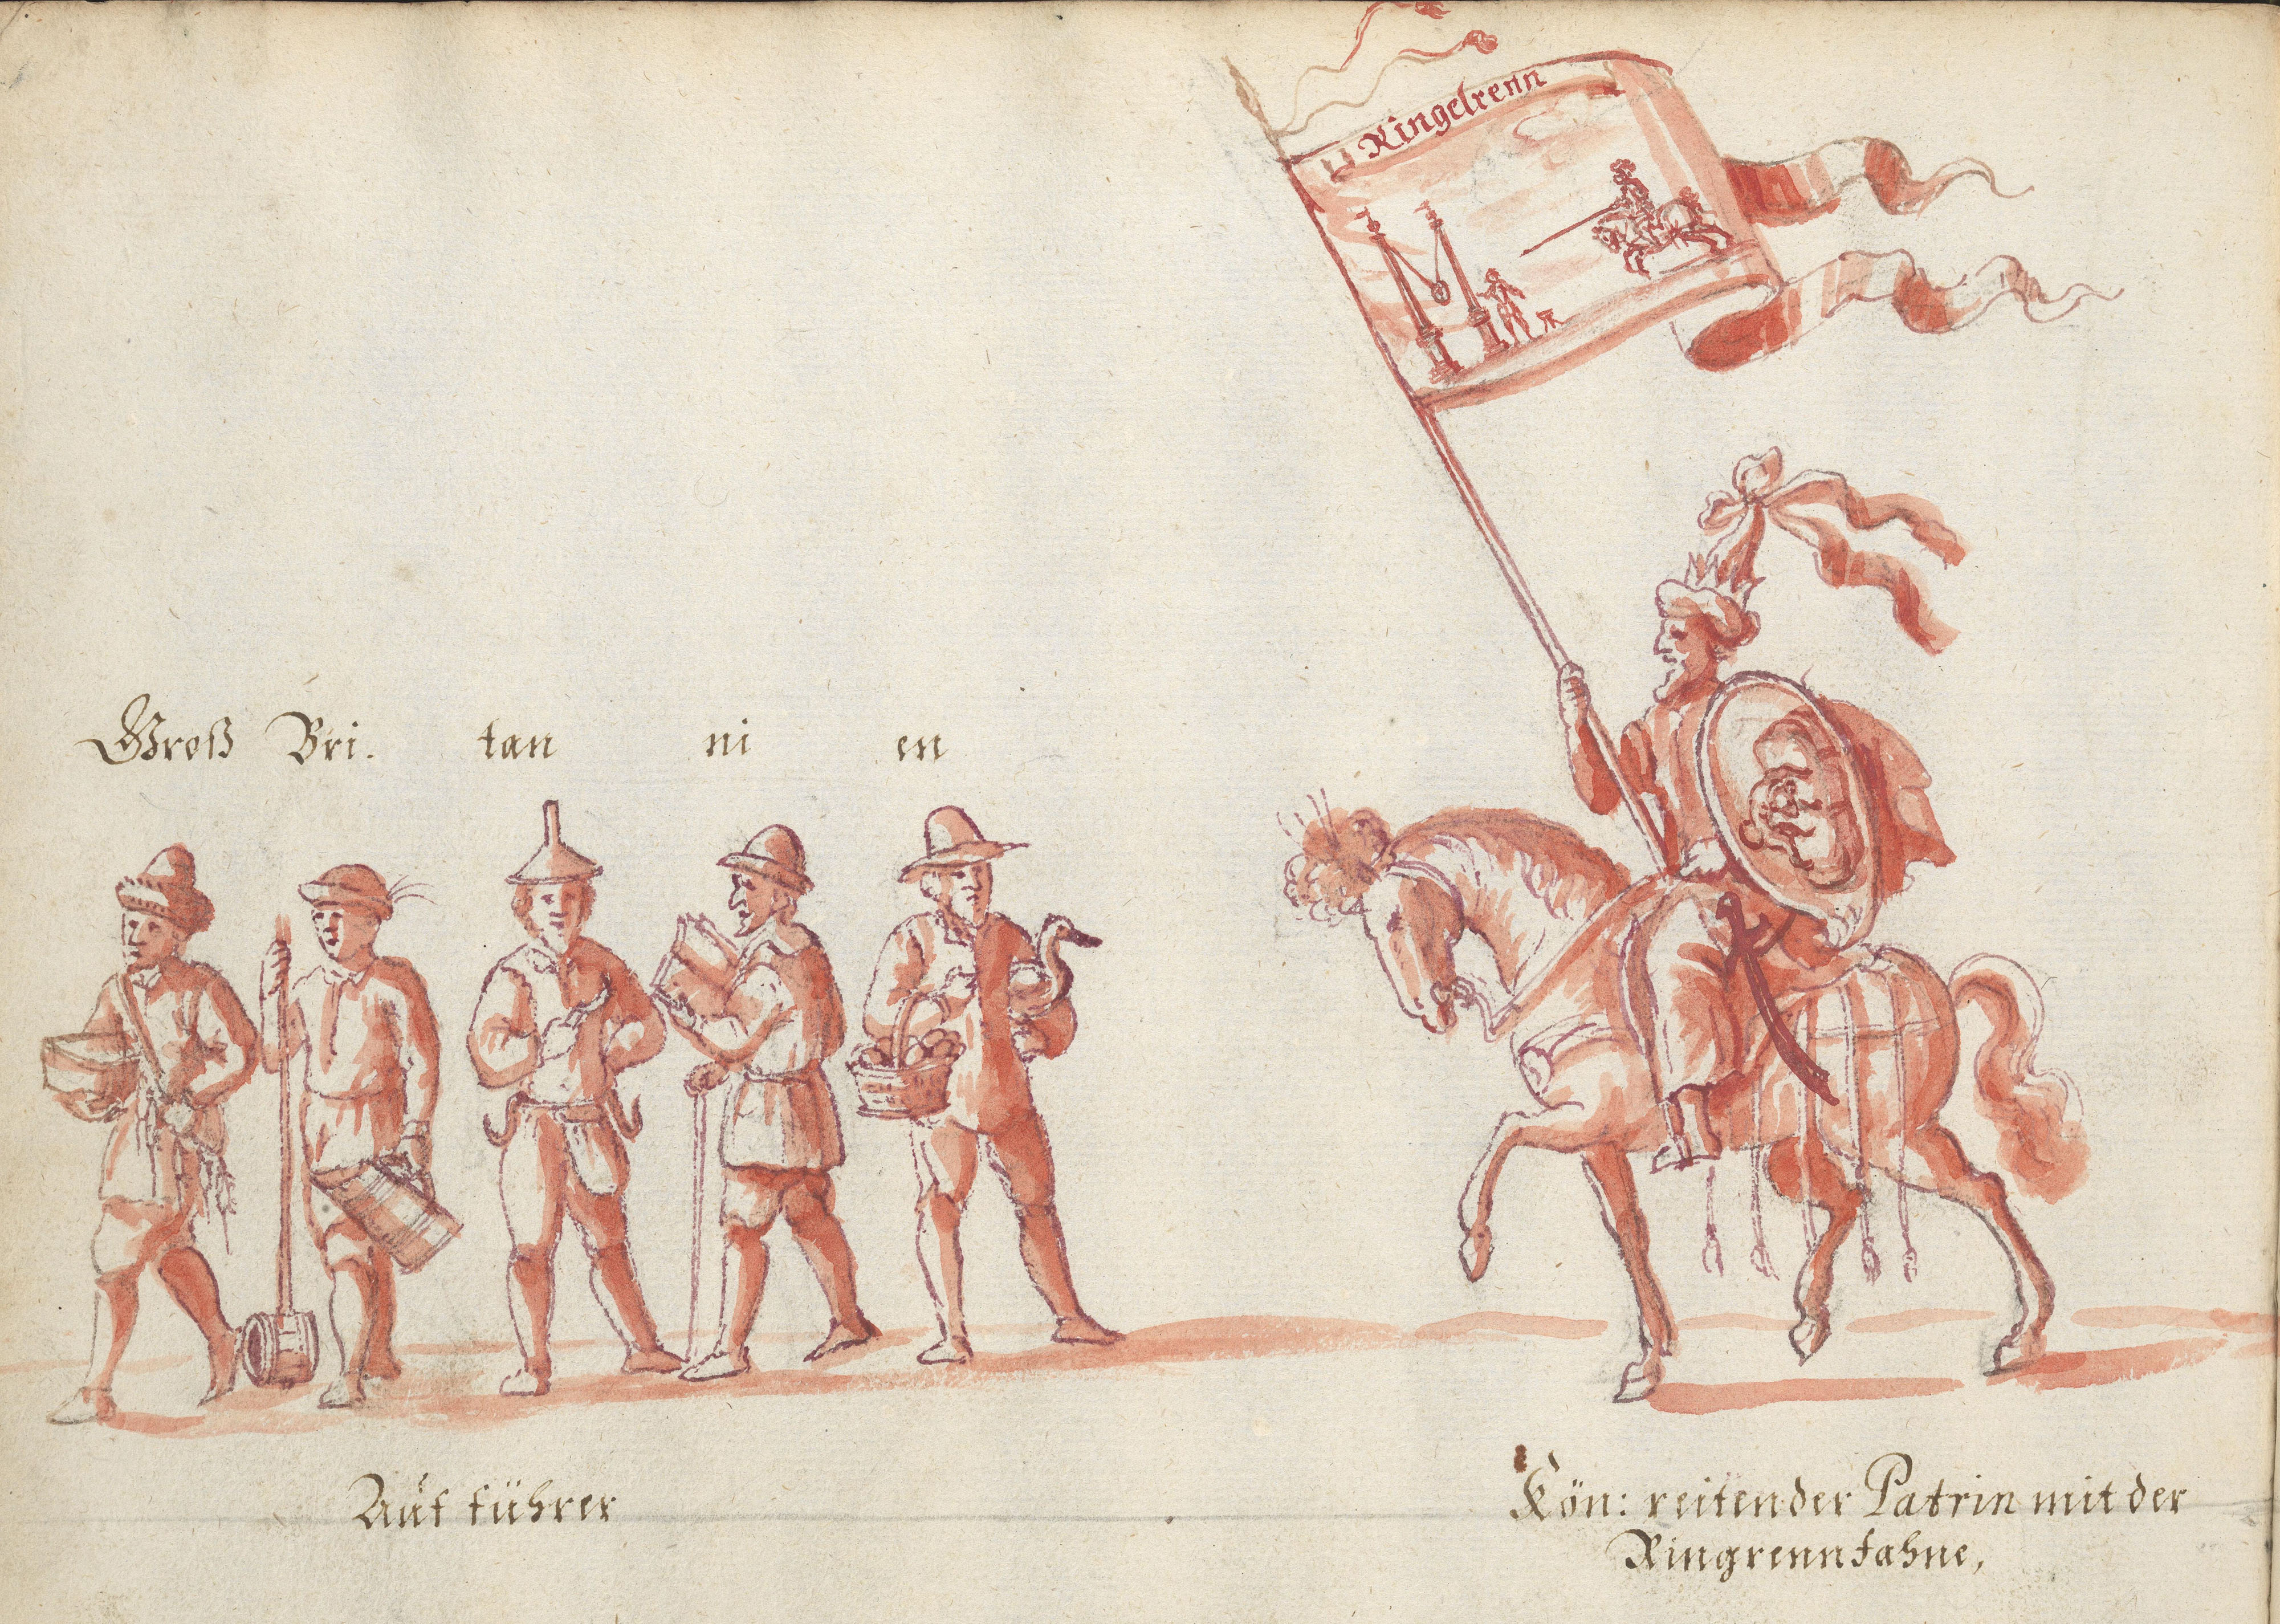 Ringelrenn
Groß Bri. tan ni en
Auf führer
Kön: reitender Patrin mit der
Ringrennfahne,